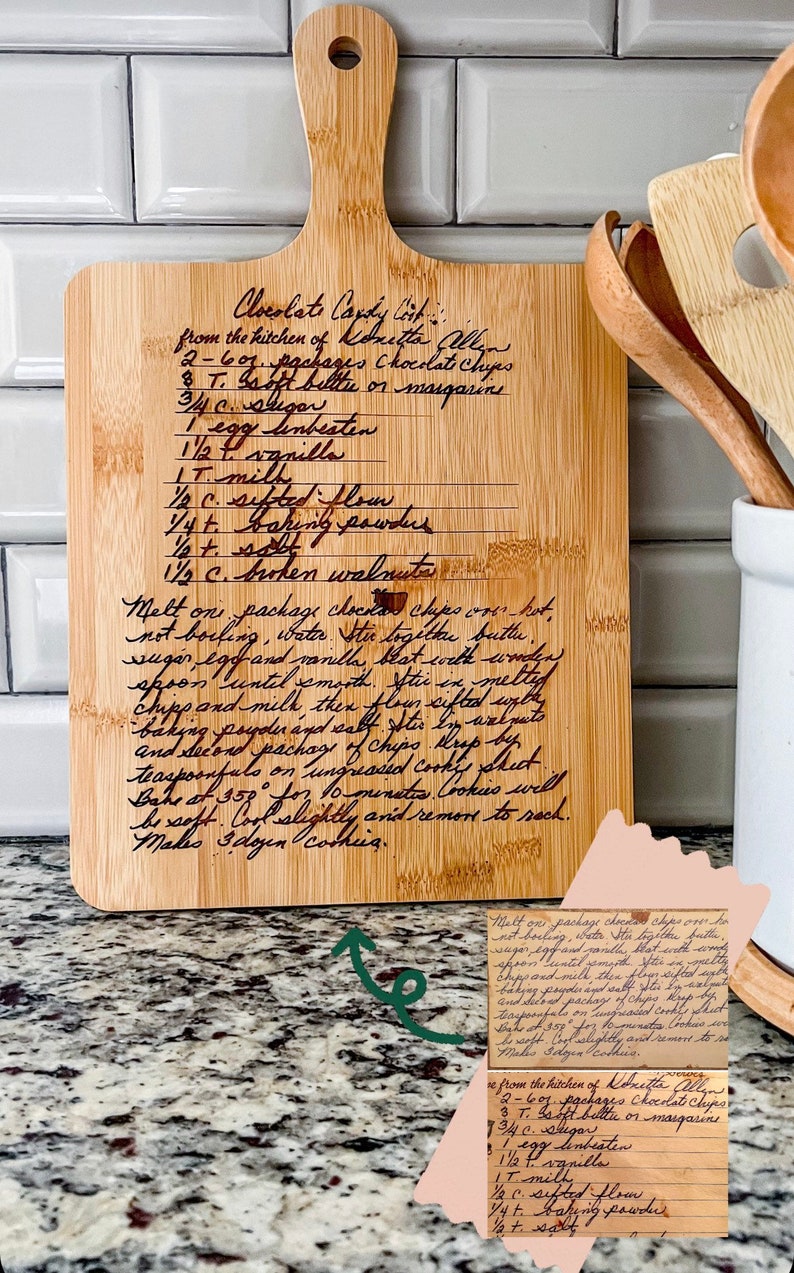 Chocolate Candy
from the kitchen of Donetta Allen
2 - 6 oz. packages Chocolat Chips
8 T. soft butter or margarine
3/4 c. sugar
1 egg unbeaten
1 1/2 t. vanilla
1 T. milk
1/2 c. sifted flour
1/4 t. baking powder
1/2 t. salt
1/2 C. broken walnuts
Melt one package chocolate chips over hot,
not boiling, water. Stir together butter,
sugar, egg and vanilla, beat with wooden
spoon until smooth. Stir in melted
chips and milk, then flour sifted with
baking powder and salt. Stir in walnuts
and second package of chips. Drop by
teaspoonfuls on ungreased cookie sheet.
Bake at 350° for 10 minutes. Cookies will
be soft. Cool slightly and remove to rack.
Makes 3 dozen cookies.
Melt one package chocolate chips over
not boiling, water. Stir together butter,
sugar, egg and vanilla, beat with
spoon until smooth. Stir in
chips and milk, then flour sifted with
baking powder and salt. Stir in walnuts
and second package of chips. Drop by
teaspoonfuls on ungreased cookie sheet
Bake at 350° for 10 minutes. Cookies
be soft. Cool slightly and remove to
Makes 3 dozen cookies.
Serves
from the kitchen of Donetta Allen
2 - 6 oz. packages Chocolat Chips
8 T. soft butter or margarine
3/4 C. sugar
1 egg unbeaten
1 1/2 T. vanilla
1 T. milk
1/2 c. sifted flour
1/4 t. baking powder
1/2 t. salt